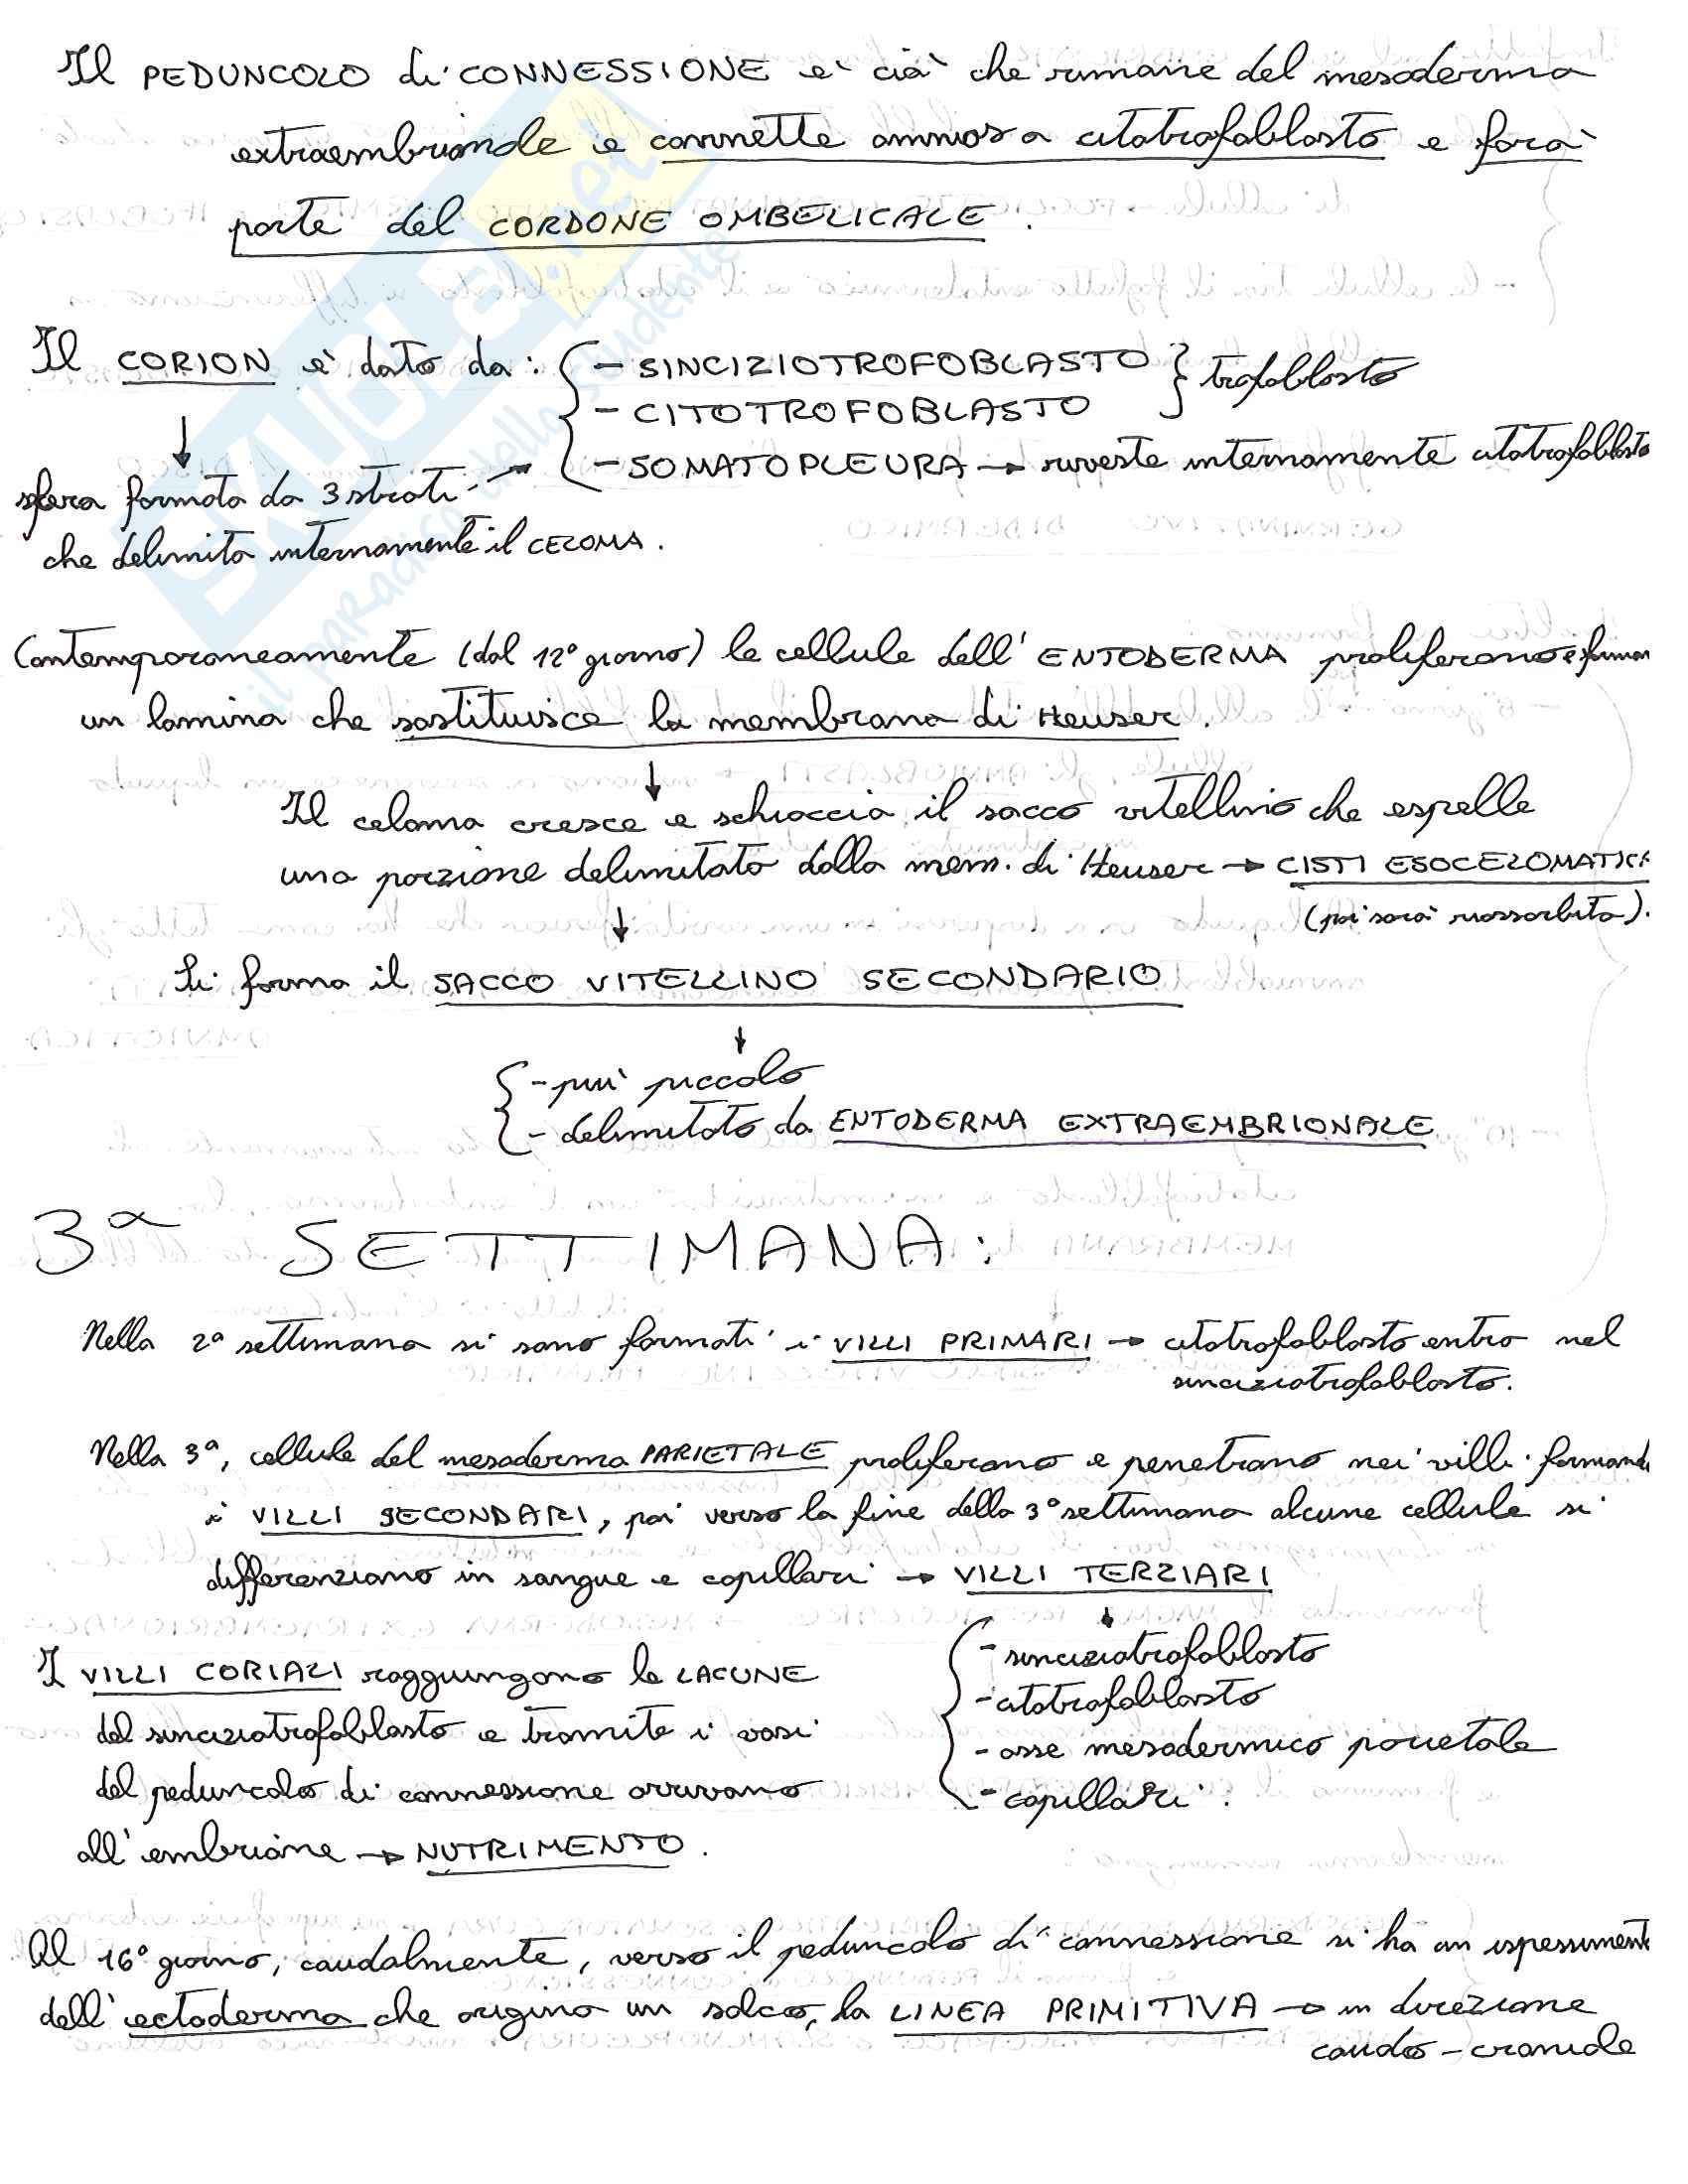 Il PEDUNCOLO di CONNESSIONE e' ciò che rimane del mesoderma
extraembrionale e connette amnios a citotrofoblasto e farà
parte del CORDONE OMBELICALE.
Il CORION e' dato da: { - SINCIZIOTROFOBLASTO } trofoblasto
- CITOTROFOBLASTO
- SOMATOPLEURA → riveste internamente citotrofoblasto
↓
sfera formata da 3 strati →
che delimita internamente il CELOMA.
Contemporaneamente (dal 12° giorno) le cellule dell'ENTODERMA proliferano e forman
un lamina che sostituisce la membrana di Heuser.
↓
Il celoma cresce e schiaccia il sacco vitellino che espelle
una porzione delimitata dalla mem. di Heuser → CISTI ESOCELOMATICA
(poi sarà riassorbita).
↓
Si forma il SACCO VITELLINO SECONDARIO
↓
{ - più piccolo
- delimitato da ENTODERMA EXTRAEMBRIONALE
3ª SETTIMANA:
Nella 2ª settimana si sono formati i VILLI PRIMARI → citotrofoblasto entro nel
sinciziotrofoblasto.
Nella 3ª, cellule del mesoderma PARIETALE proliferano e penetrano nei villi formand
i VILLI SECONDARI, poi verso la fine della 3ª settimana alcune cellule si
differenziano in sangue e capillari → VILLI TERZIARI
↓
{ - sinciziotrofoblasto
- citotrofoblasto
- asse mesodermico parietale
- capillari.
I VILLI CORIALI raggiungono le LACUNE
del sinciziotrofoblasto e tramite i vasi
del peduncolo di connessione arrivano
all'embrione → NUTRIMENTO.
Al 16° giorno, caudalmente, verso il peduncolo di connessione si ha un ispessiment
dell'ectoderma che origina un solco, la LINEA PRIMITIVA → in direzione
caudo-craniale
SKUOLA.net
il paradiso dello studente